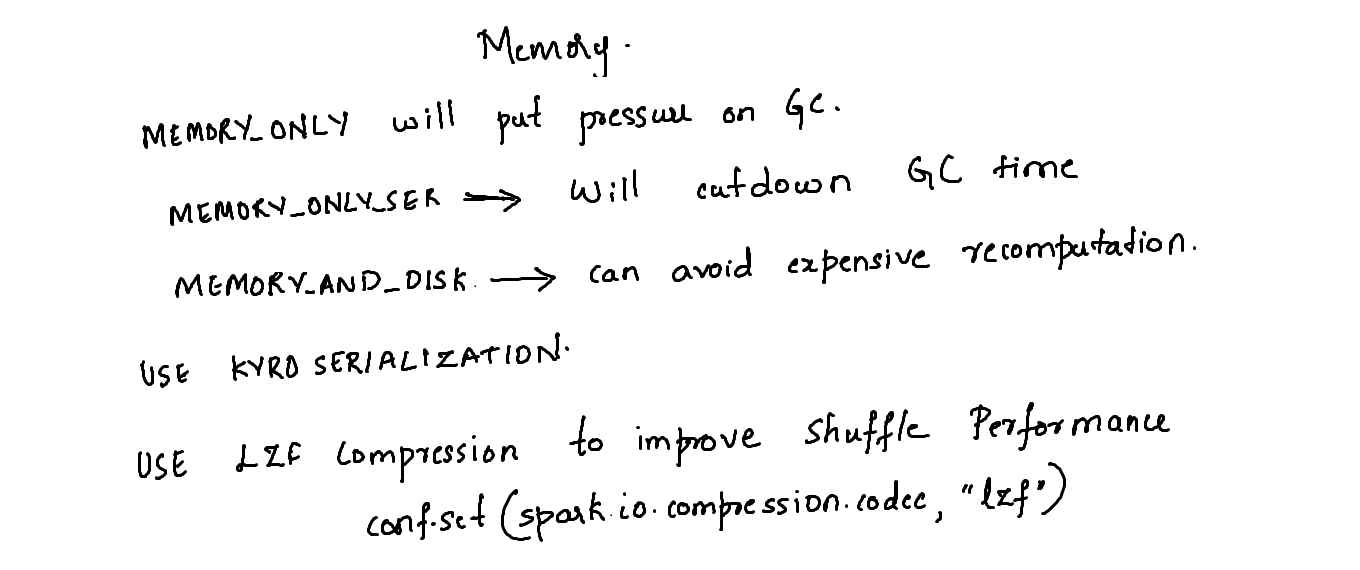 Memory.
MEMORY_ONLY will put pressure on GC.
MEMORY_ONLY_SER → Will cutdown GC time
MEMORY_AND_DISK. → can avoid expensive recomputation.
USE KYRO SERIALIZATION.
USE LZF Compression to improve shuffle Performance
conf.set (spark.io.compression.codec, "lzf")